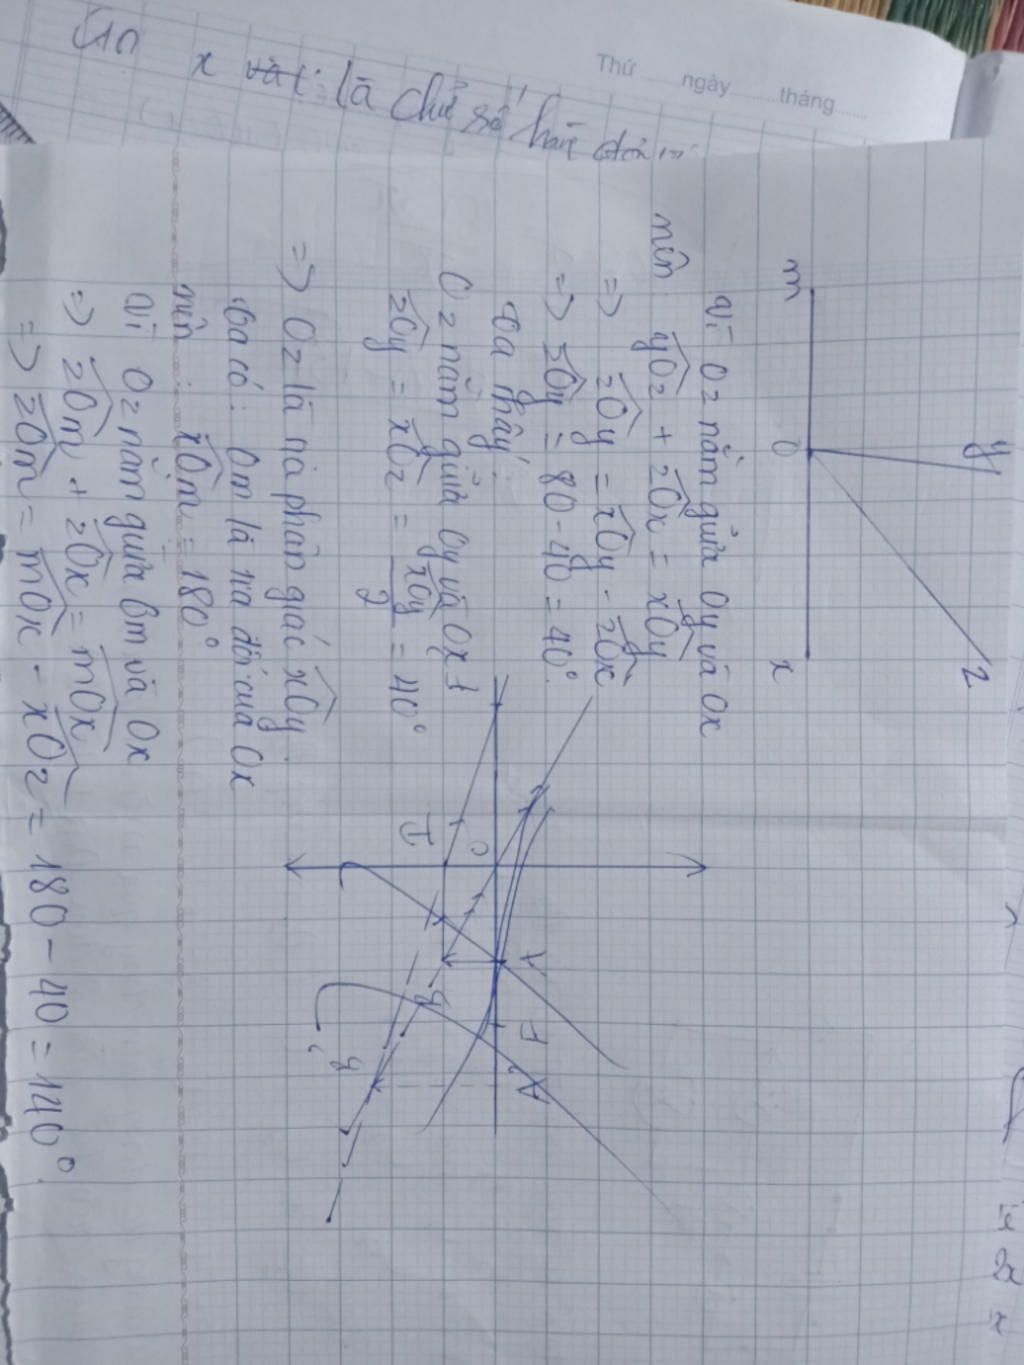 x là chữ số hàng
Thứ ngày tháng
y
z
m
O
x
Vì Oz nằm giữa Oy và Ox
nên yOz + zOx = xOy
=> zOy = xOy - zOx
=> zOy = 80 - 40 = 40°.
Ta thấy:
Oz nằm giữa Oy và Ox
zOy = xOz = xOy/2 = 40°
=> Oz là tia phân giác xOy.
Ta có: Om là tia đối của Ox
nên xOm = 180°
Vì Oz nằm giữa Om và Ox
=> zOm + zOx = mOx
=> zOm = mOx - xOz = 180 - 40 = 140°.
I
O
A
y